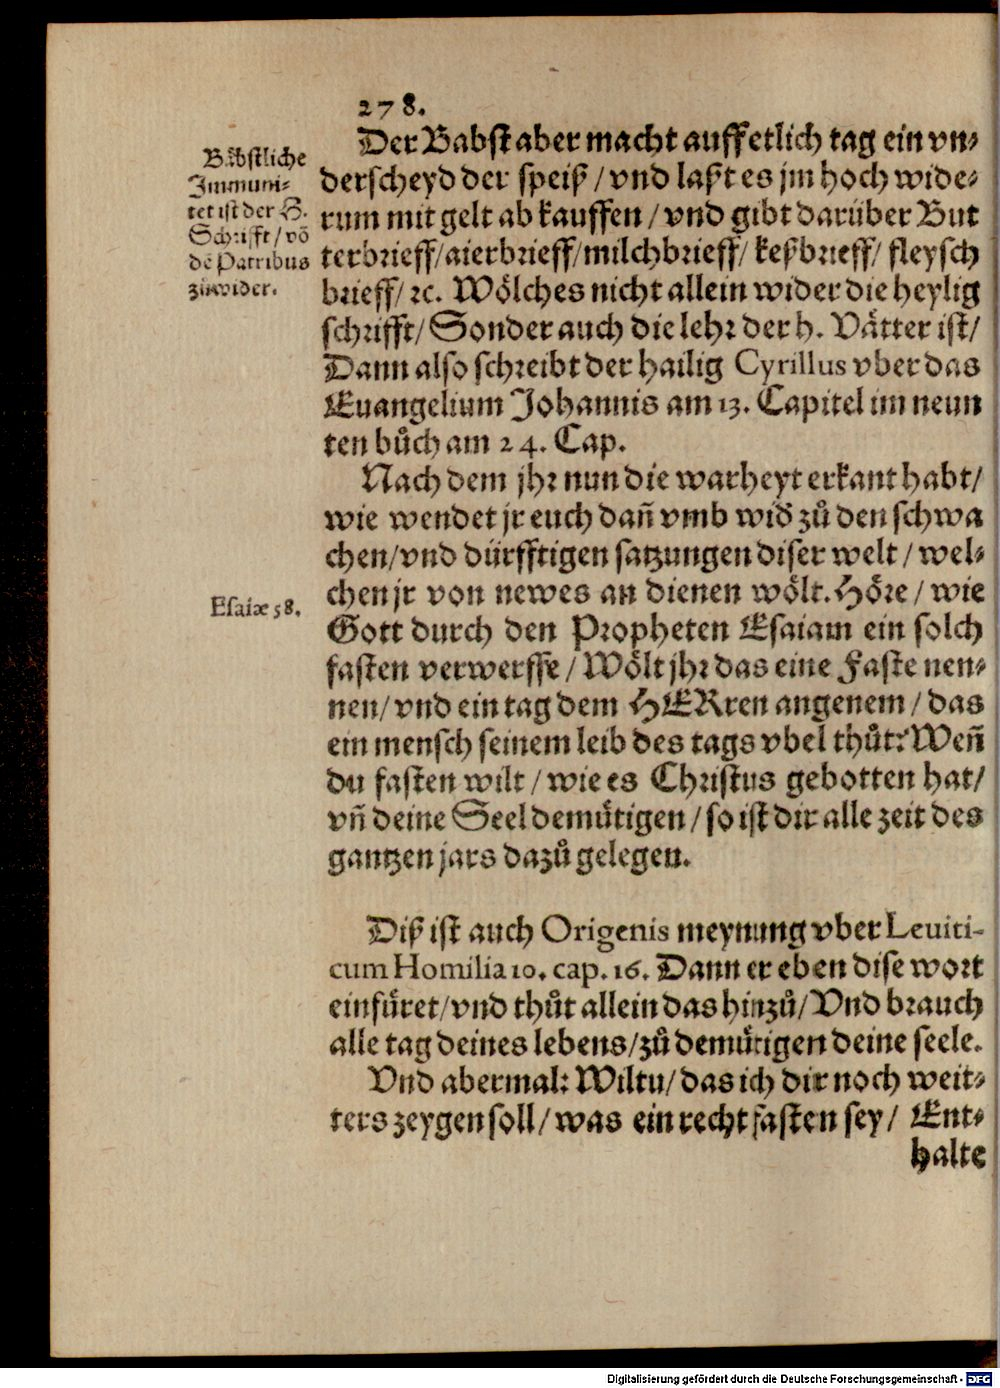 278.
Der Babst aber macht auff etlich tag ein vn-
derscheyd der speiß / vnd laßt es jm hoch wide-
rum mit gelt ab kauffen / vnd gibt darüber But
terbrieff/aierbrieff/milchbrieff/ keßbrieff/ fleysch
brieff/ ꝛc. Wölches nicht allein wider die heylig
schrifft/ Sonder auch die lehr der h. Vätter ist/
Dann also schreibt der hailig Cyrillus vber das
Euangelium Johannis am 13. Capitel im neun
ten bůch am 24. Cap.
Bäbstliche
Immuni-
tet ist der H.
Schrifft / võ
dẽ Patribus
zůwider.
Nach dem jhr nun die warheyt erkant habt/
wie wendet jr euch dañ vmb wid̄ zů den schwa
chen/vnd dürfftigen satzungen diser welt / wel-
chen jr von newes an dienen wölt. Höre / wie
Gott durch den Propheten Esaiam ein solch
fasten verwerffe / Wölt jhr das eine Faste nen-
nen/ vnd ein tag dem HERren angenem / das
ein mensch seinem leib des tags vbel thůt? Weñ
du fasten wilt / wie es Christus gebotten hat/
vñ deine Seel demütigen / so ist dir alle zeit des
gantzen jars dazů gelegen.
Esaiæ 58.
Diß ist auch Origenis meynung vber Leuiti-
cum Homilia 10. cap. 16. Dann er eben dise wort
einfüret/vnd thůt allein das hinzů/ Vnd brauch
alle tag deines lebens/zů demütigen deine seele.
Vnd abermal: Wiltu/ das ich dir noch weit-
ters zeygen soll/ was ein recht fasten sey/ Ent-
halte
Digitalisierung gefördert durch die Deutsche Forschungsgemeinschaft - DFG